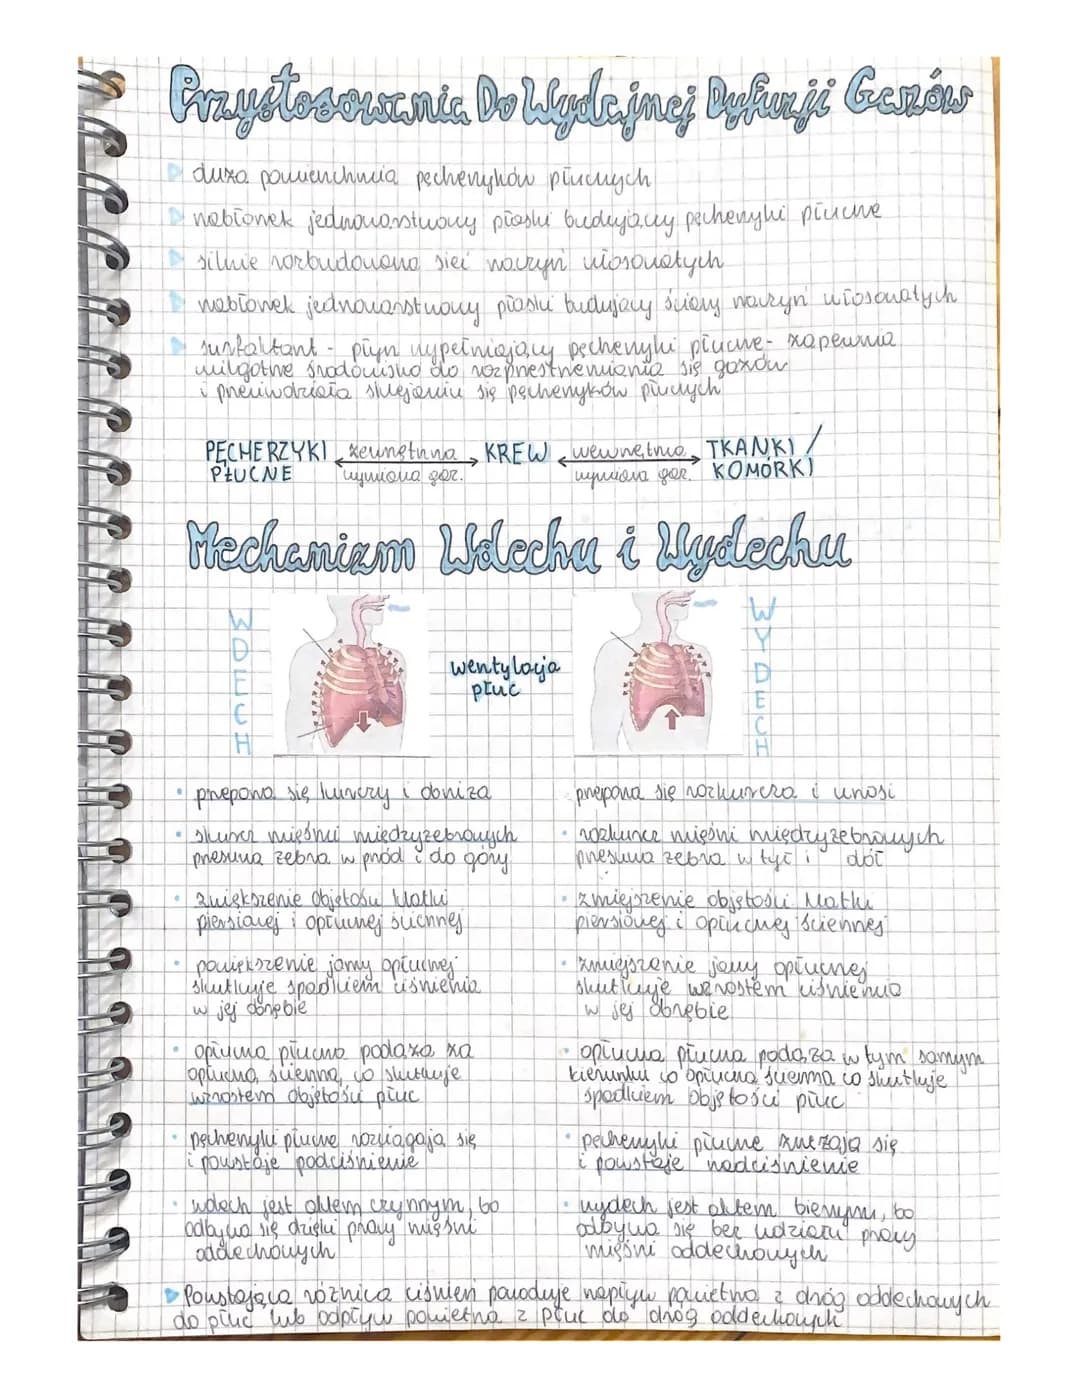 Przystosowania Do Wydajnej Dyfuzji Gazów
duża powierzchnia pęcherzyków płucnych
nabłonek jednowarstwowy płaski budujący pęcherzyki płucne
silnie rozbudowana sieć naczyń włosowatych
nabłonek jednowarstwowy płaski budujący ściany naczyń włosowatych
surfaktant - płyn wypełniający pęcherzyki płucne - zapewnia
wilgotne środowisko do rozprzestrzeniania się gazów
i przeciwdziała sklejaniu się pęcherzyków płucnych
PĘCHERZYKI PŁUCNE zewnętrzna wymiana gaz. KREW wewnętrzna wymiana gaz. TKANKI / KOMÓRKI
Mechanizm Wdechu i Wydechu
WDECH
wentylacja
płuc
WYDECH
przepona się kurczy i obniża
skurcz mięśni międzyżebrowych
przesuwa żebra w przód i do góry
zwiększenie objętości klatki
piersiowej i opłucnej ściennej
powiększenie jamy opłucnej
skutkuje spadkiem ciśnienia
w jej obrębie
opłucna płucna podąża za
opłucną ścienną, co skutkuje
wzrostem objętości płuc
pęcherzyki płucne rozciągają się
i powstaje podciśnienie
wdech jest aktem czynnym, bo
odbywa się dzięki pracy mięśni
oddechowych
przepona się rozkurcza i unosi
rozkurcz mięśni międzyżebrowych
przesuwa żebra w tył i dół
zmiejszenie objętości klatki
piersiowej i opłucnej ściennej
zmiejszenie jamy opłucnej
skutkuje wzrostem ciśnienia
w jej obrębie
opłucna płucna podąża w tym samym
kierunku co opłucna ścienna co skutkuje
spadkiem objętości płuc
pęcherzyki płucne zwężają się
i powstaje nadciśnienie
wydech jest aktem biernym, bo
odbywa się bez udziału pracy
mięśni oddechowych
Powstająca różnica ciśnień powoduje napływ powietrza z dróg oddechowych
do płuc lub odpływ powietrza z płuc do dróg oddechowych